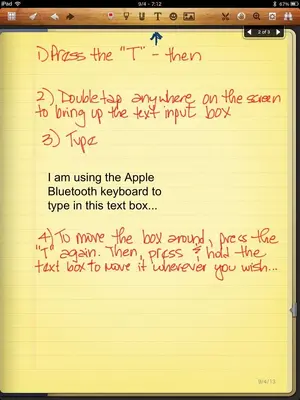 iPad
9/4 - 7:12
67%
T
2 of 3
1) Press the "T" - then
2) Double tap anywhere on the screen
to bring up the text input box
3) Type
I am using the Apple
Bluetooth keyboard to
type in this text box...
4) To move the box around, press the
"T" again. Then, press & hold the
text box to move it wherever you wish...
9/4/13